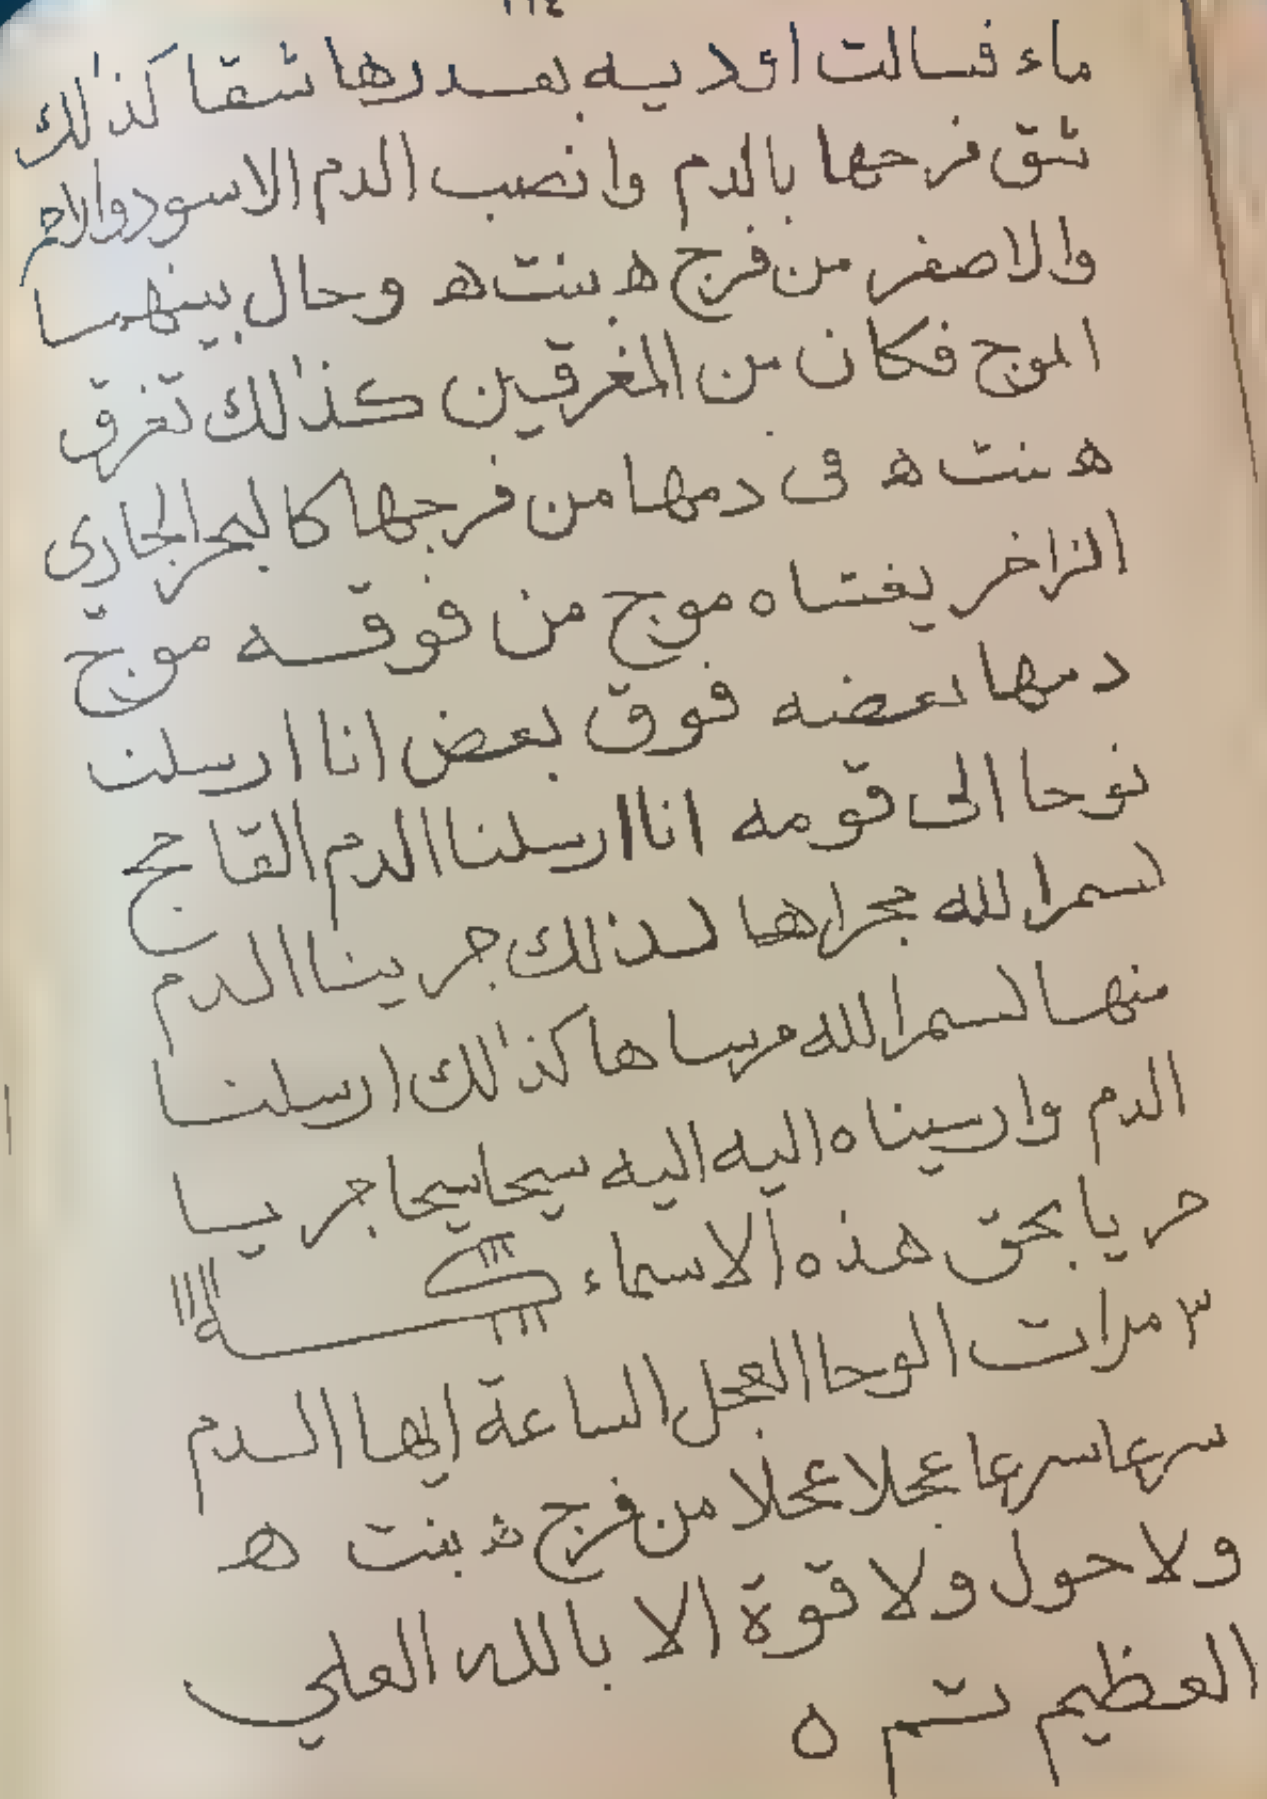 ١١٤
ماء فسالت اودية بقدرها شقا كذلك
شق فرجها بالدم وانصب الدم الاسود والاحمر
والاصفر من فرج ه بنت ه وحال بينهما
الموج فكان من المغرقين كذلك تغرق
ه بنت ه فى دمها من فرجها كالبحر الجارى
الزاخر يغشاه موج من فوقه موج
دمها بعضه فوق بعض انا ارسلنا
نوحا الى قومه انا ارسلنا الدم
بسم الله مجراها كذلك جرينا الدم
منها بسم الله مرساها كذلك ارسلنا
الدم وارسيناه اليه اليه سيحا سيحا جريا
جريا بحق هذه الاسماء
٣ مرات الوحا العجل الساعة ايها الدم
سرعا سرعا عجلا عجلا من فرج ه بنت ه
ولا حول ولا قوة الا بالله العلي
العظيم تم ه